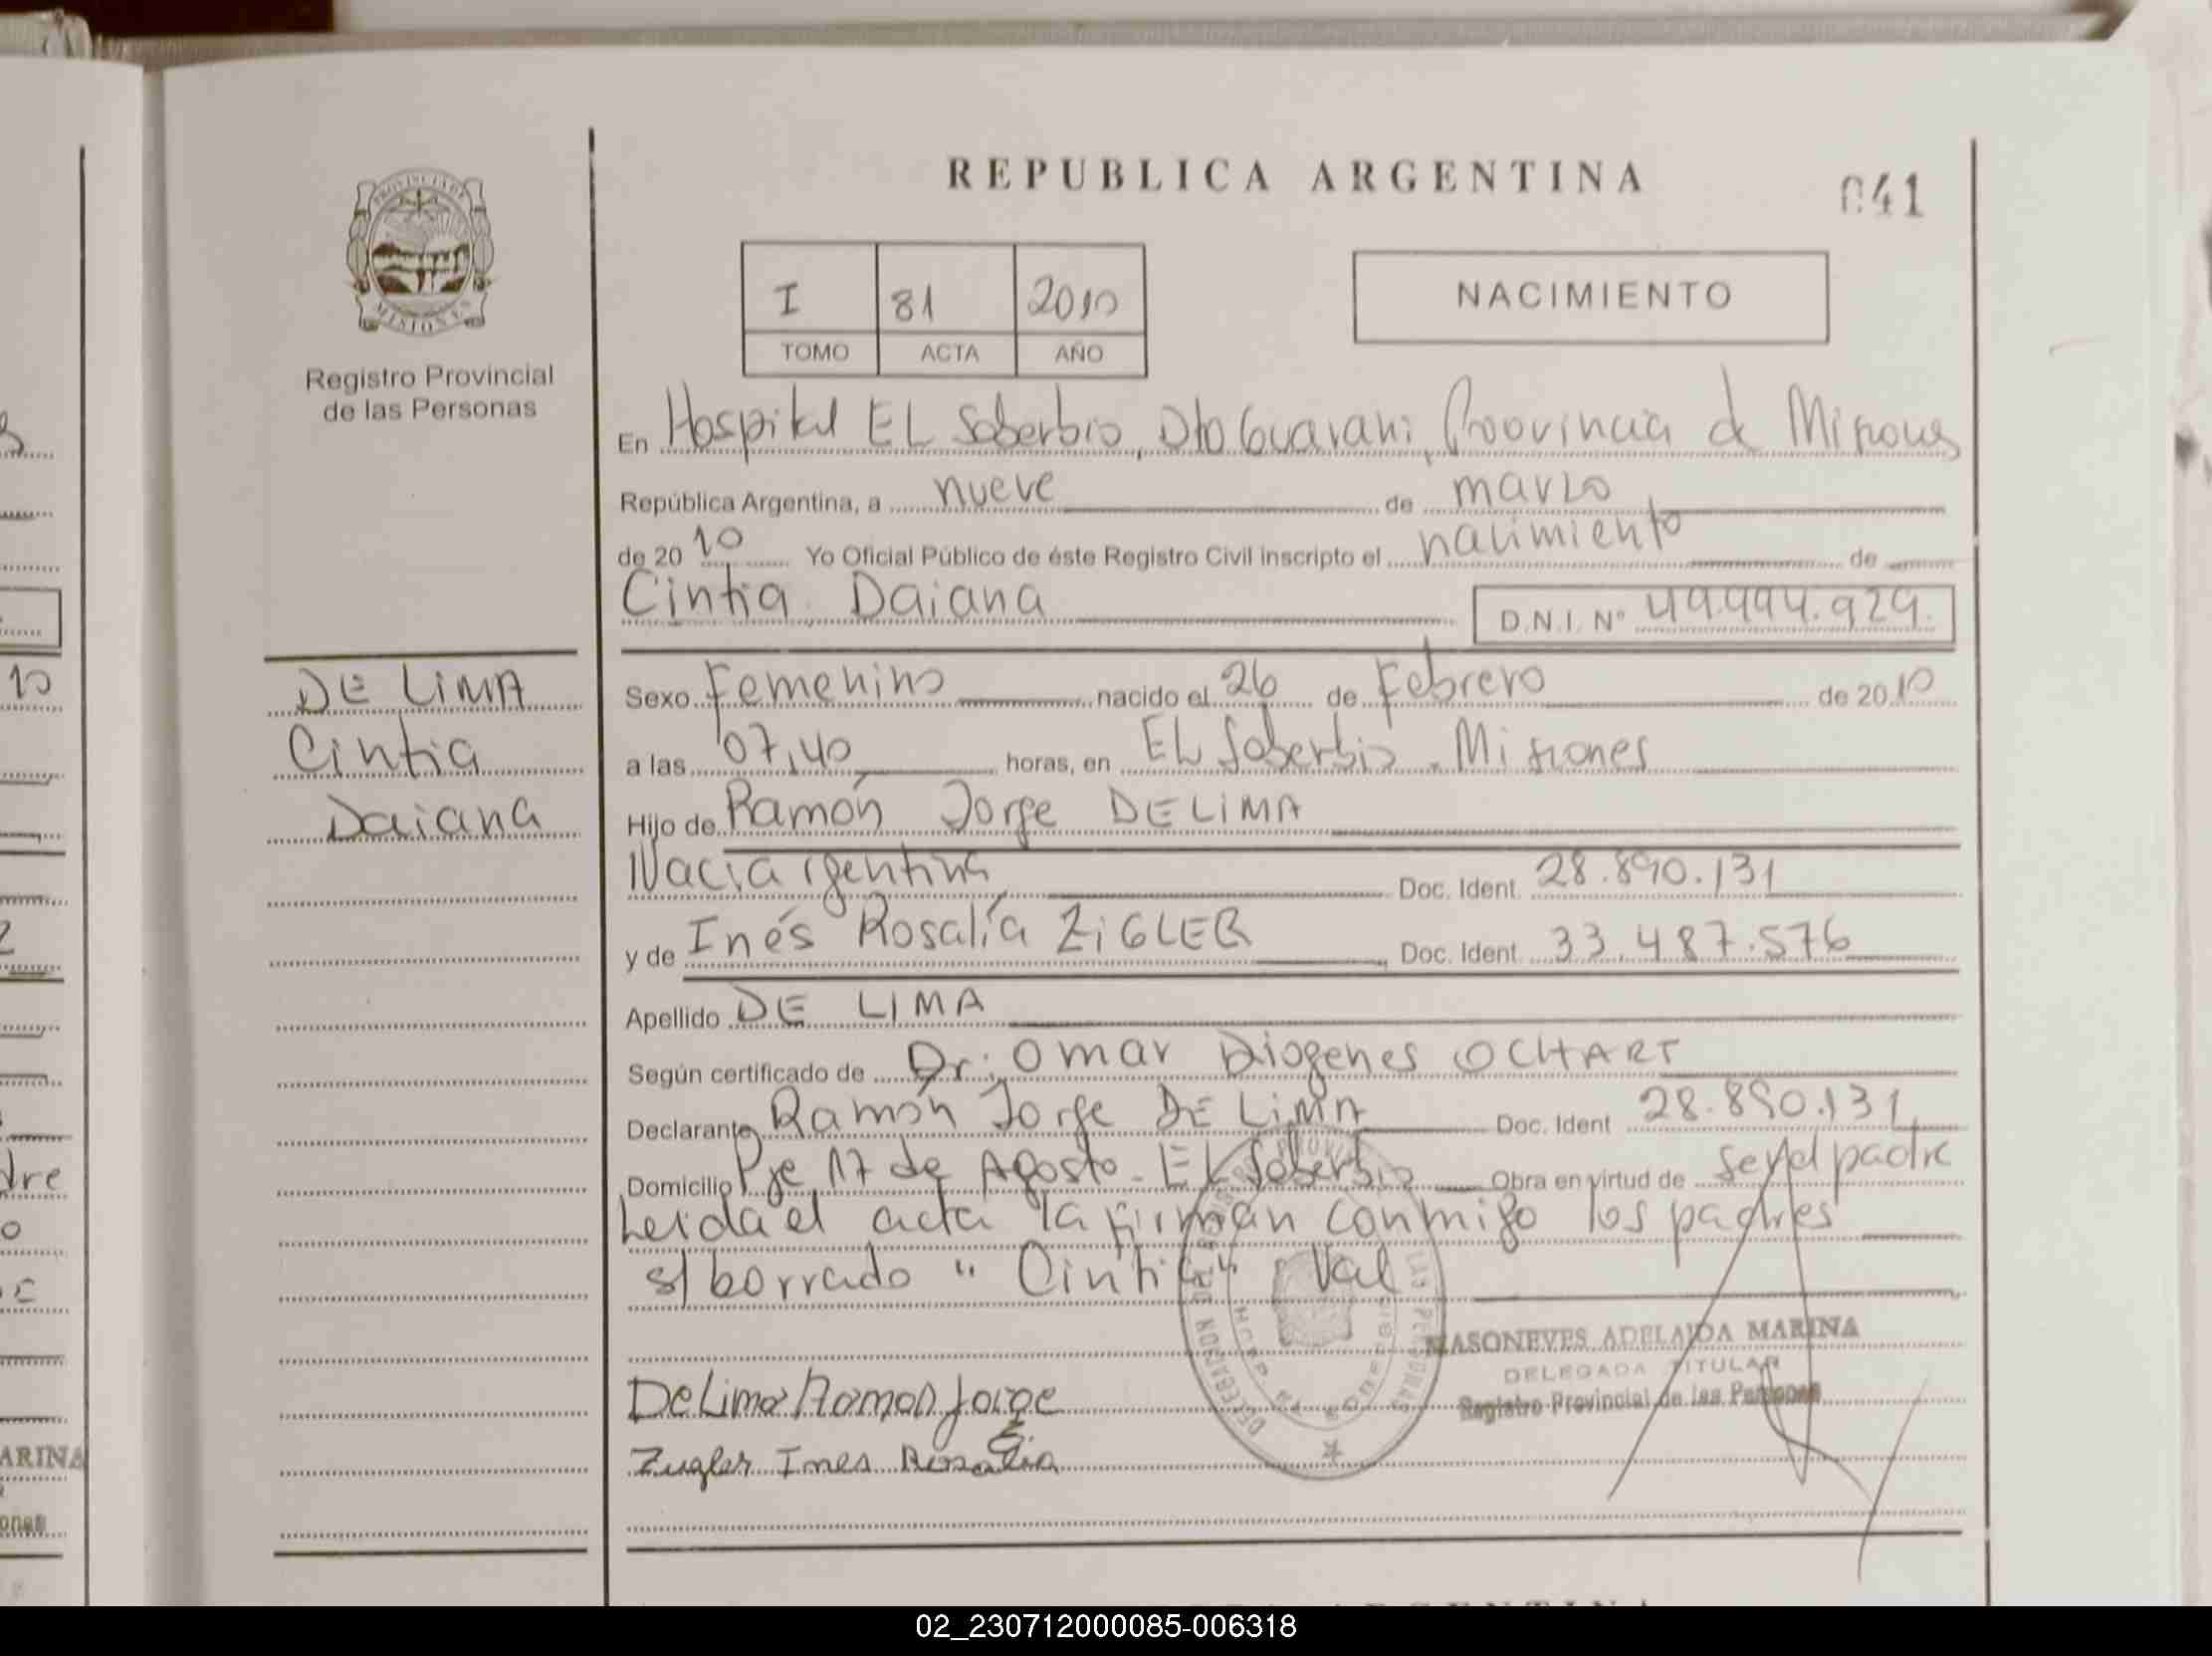 REPUBLICA ARGENTINA
041
PROVINCIA DE
MISIONES
Registro Provincial
de las Personas
I 81 2010
TOMO ACTA AÑO
NACIMIENTO
En Hospital EL Soberbio, Dto Guarani, Provincia de Misiones
República Argentina, a nueve de marzo
de 2010 Yo Oficial Público de éste Registro Civil inscripto el nacimiento de
Cintia Daiana D.N.I. Nº 49.994.929.
DE LIMA
Cintia
Daiana
Sexo Femenino nacido el 26 de Febrero de 2010
a las 07,40 horas, en EL Soberbio - Misiones
Hijo de Ramón Jorge DE LIMA
Nac. argentina Doc. Ident. 28.890.131
y de Inés Rosalía ZiGLER Doc. Ident. 33.487.576
Apellido DE LIMA
Según certificado de Dr: Omar Diogenes OCHART
Declarante Ramón Jorge DE LIMA Doc. Ident 28.890.131
Domicilio Pje 17 de Agosto - EL Soberbio Obra en virtud de ser el padre
Leida el acta la firman conmigo los padres
s/ borrado "Cintia" Val
MASONEVES ADELAIDA MARINA
DELEGADA TITULAR
Registro Provincial de las Personas
De Lima Ramon Jorge
Zugler Ines Rosalia
ARINA
02_230712000085-006318